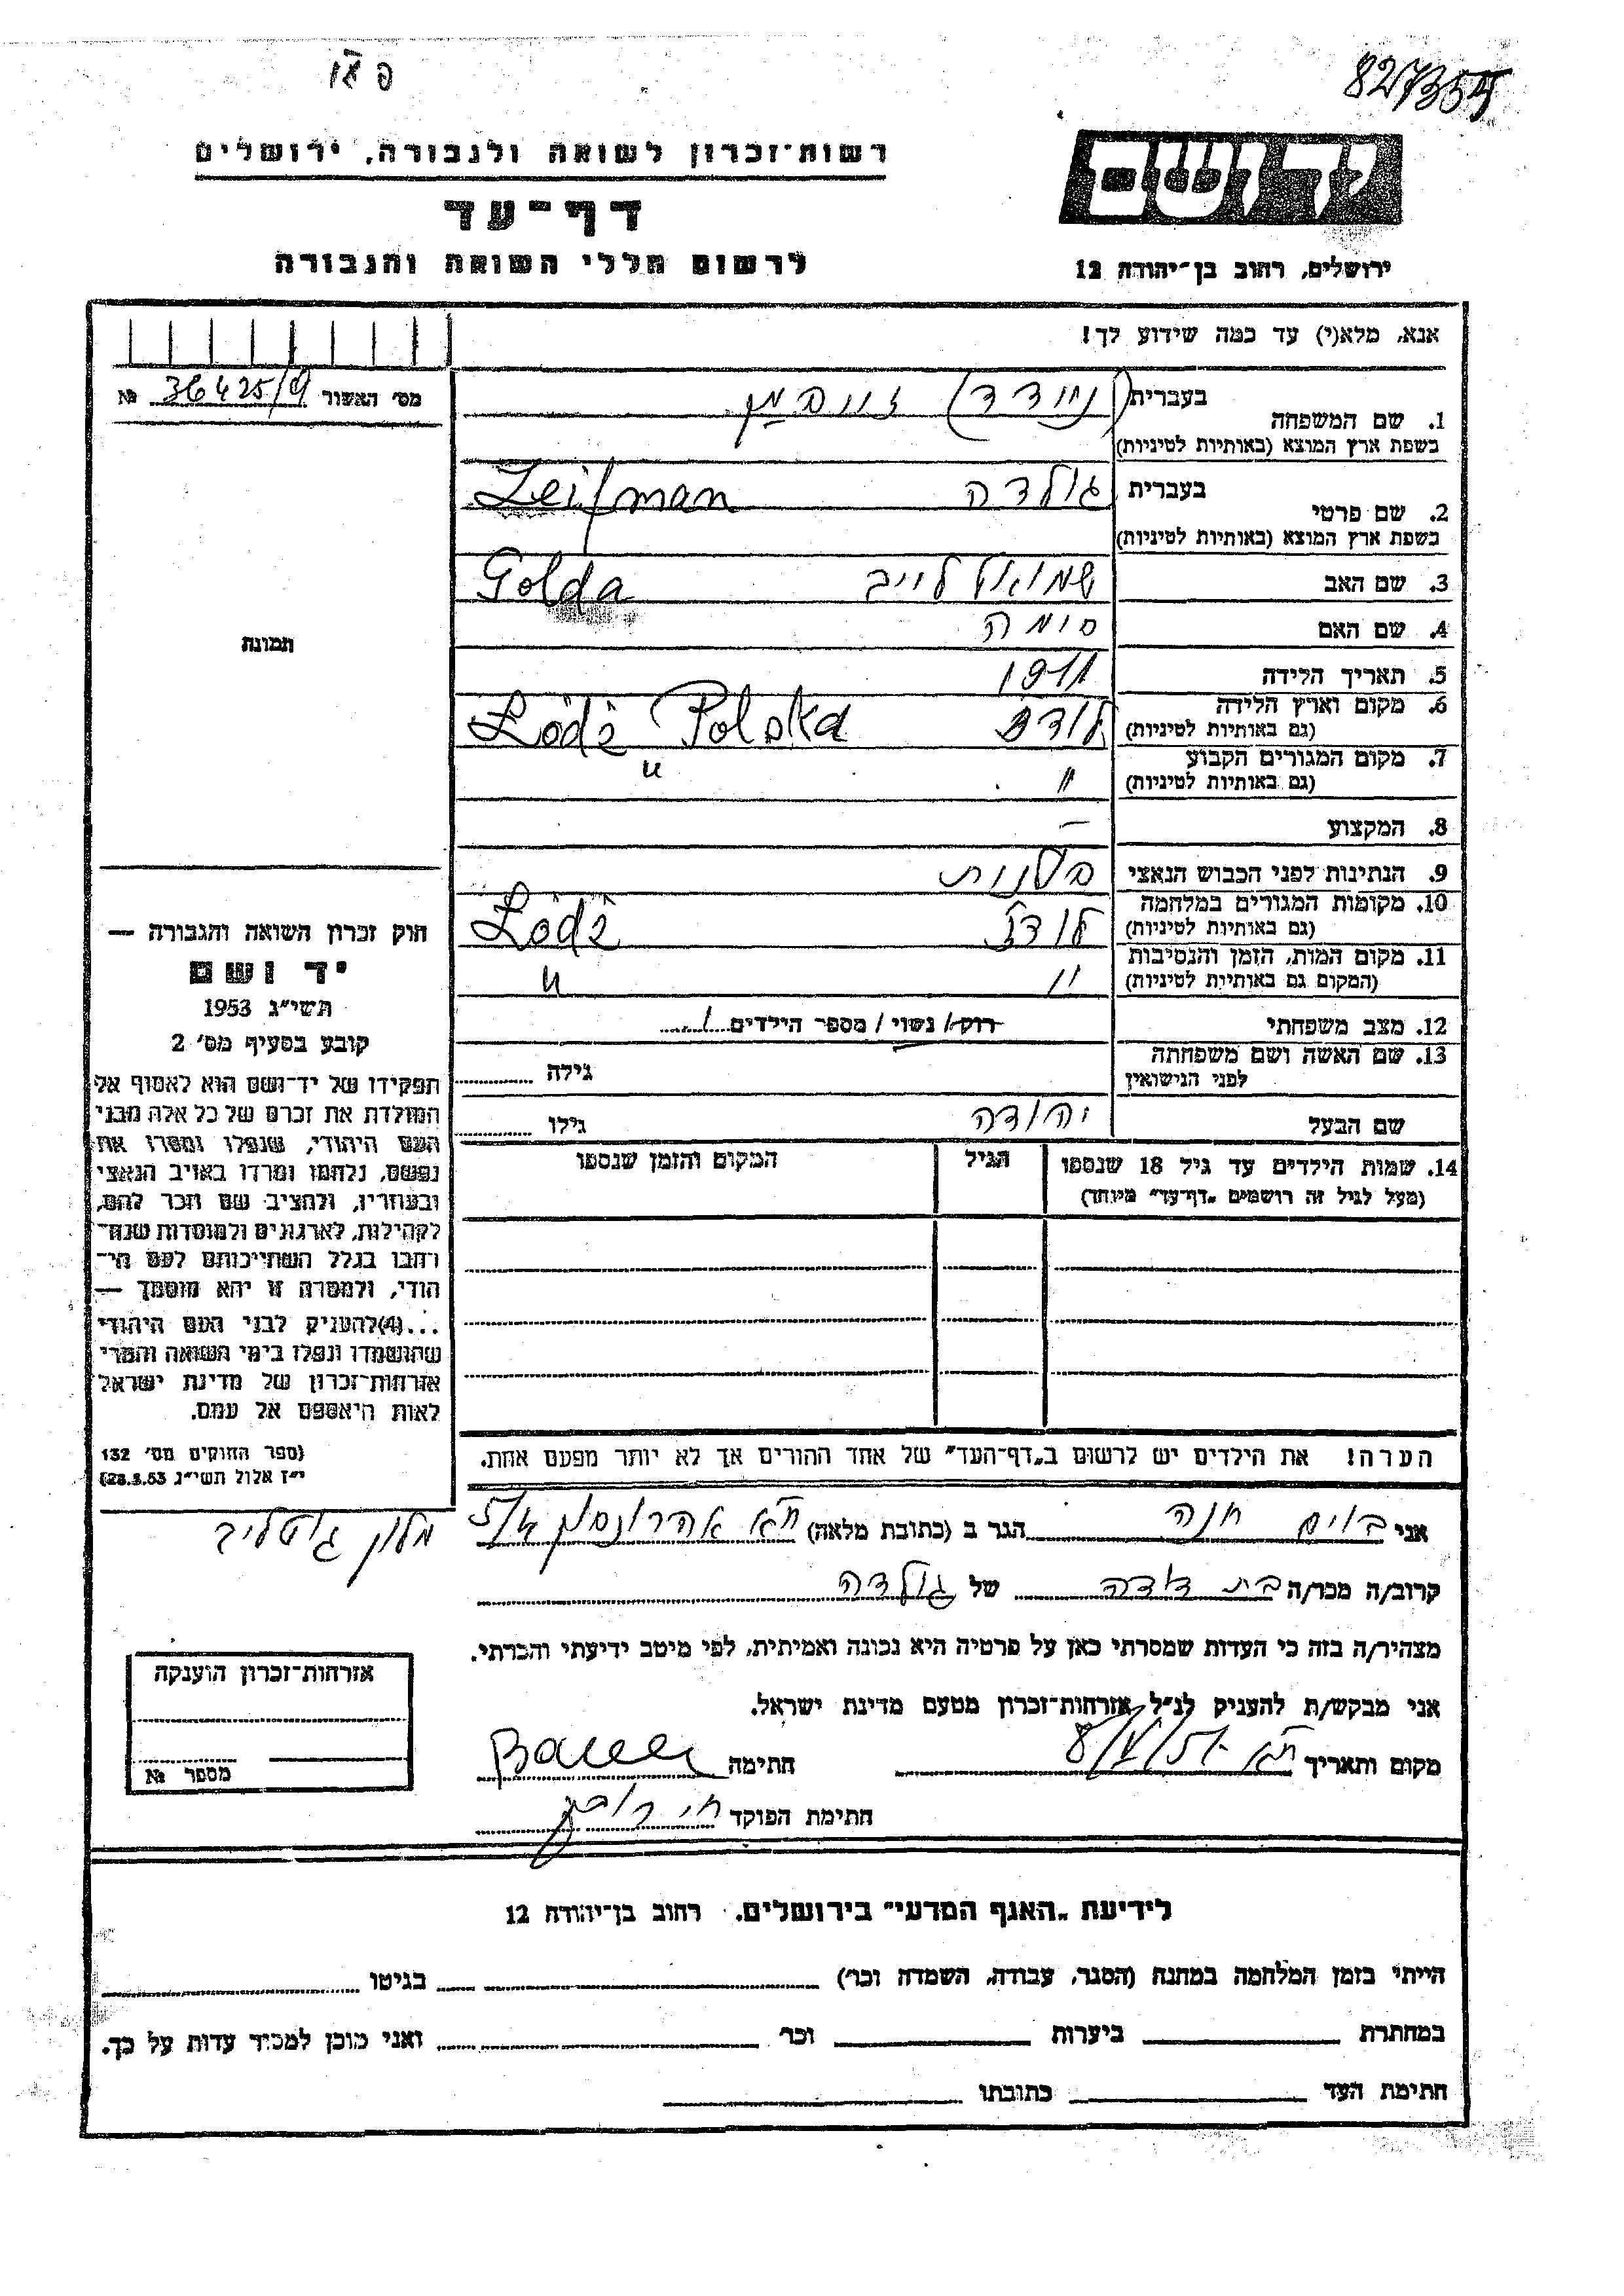 827355
רשות־זכרון לשואה ולגבורה, ירושלים
יד ושם
דף־עד
לרשום חללי השואה והגבורה
ירושלים, רחוב בן־יהודה 12
אנא, מלא(י) עד כמה שידוע לך!
מס׳ האשור 36425/9 №
1. שם המשפחה
בעברית
בשפת ארץ המוצא (באותיות לטיניות)
Zeifman
2. שם פרטי
בעברית גולדה
בשפת ארץ המוצא (באותיות לטיניות)
Golda
3. שם האב שמואל לייב
4. שם האם סימה
5. תאריך הלידה 1911
6. מקום וארץ הלידה
(גם באותיות לטיניות)
לודז Łódź Polska
7. מקום המגורים הקבוע
(גם באותיות לטיניות)
״ ״
8. המקצוע —
9. הנתינות לפני הכבוש הנאצי פולנית
10. מקומות המגורים במלחמה
(גם באותיות לטיניות)
לודז Łódź
11. מקום המות, הזמן והנסיבות
(המקום גם באותיות לטיניות)
״ ״
12. מצב משפחתי רווק / נשוי / מספר הילדים 1
13. שם האשה ושם משפחתה
לפני הנישואין
גילה
שם הבעל יהודה גילו
14. שמות הילדים עד גיל 18 שנספו
(מעל לגיל זה רושמים „דף־עד״ מיוחד)
הגיל
המקום והזמן שנספו
תמונה
חוק זכרון השואה והגבורה —
יד ושם
תשי״ג 1953
קובע בסעיף מס׳ 2
תפקידו של יד־ושם הוא לאסוף אל
המולדת את זכרם של כל אלה מבני
העם היהודי, שנפלו ומסרו את
נפשם, נלחמו ומרדו באויב הנאצי
ובעוזריו, ולהציב שם וזכר להם,
לקהילות, לארגונים ולמוסדות שנח־
רבו בגלל השתייכותם לעם הי־
הודי, ולמטרה זו יהא מוסמך —
...(4) להעניק לבני העם היהודי
שהושמדו ונפלו בימי השואה והמרי
אזרחות־זכרון של מדינת ישראל
לאות היאספם אל עמם.
(ספר החוקים מס׳ 132
י״ז אלול תשי״ג 28.8.53)
הערה! את הילדים יש לרשום ב„דף־העד״ של אחד ההורים אך לא יותר מפעם אחת.
אני בוים חנה הגר ב (כתובת מלאה) ת״א אהרונסון
מלון
קרוב/ה מכר/ה בת דודה של גולדה
מצהיר/ה בזה כי העדות שמסרתי כאן על פרטיה היא נכונה ואמיתית, לפי מיטב ידיעתי והכרתי.
אני מבקש/ת להעניק לנ״ל אזרחות־זכרון מטעם מדינת ישראל.
מקום ותאריך ת״א
חתימה
חתימת הפוקד
אזרחות־זכרון הוענקה
מספר №
לידיעת „האגף המדעי״ בירושלים. רחוב בן־יהודה 12
הייתי בזמן המלחמה במחנה (הסגר, עבודה, השמדה וכו׳) בגיטו
במחתרת ביערות וכו׳ ואני מוכן למסיר עדות על כך.
חתימת העד כתובתו